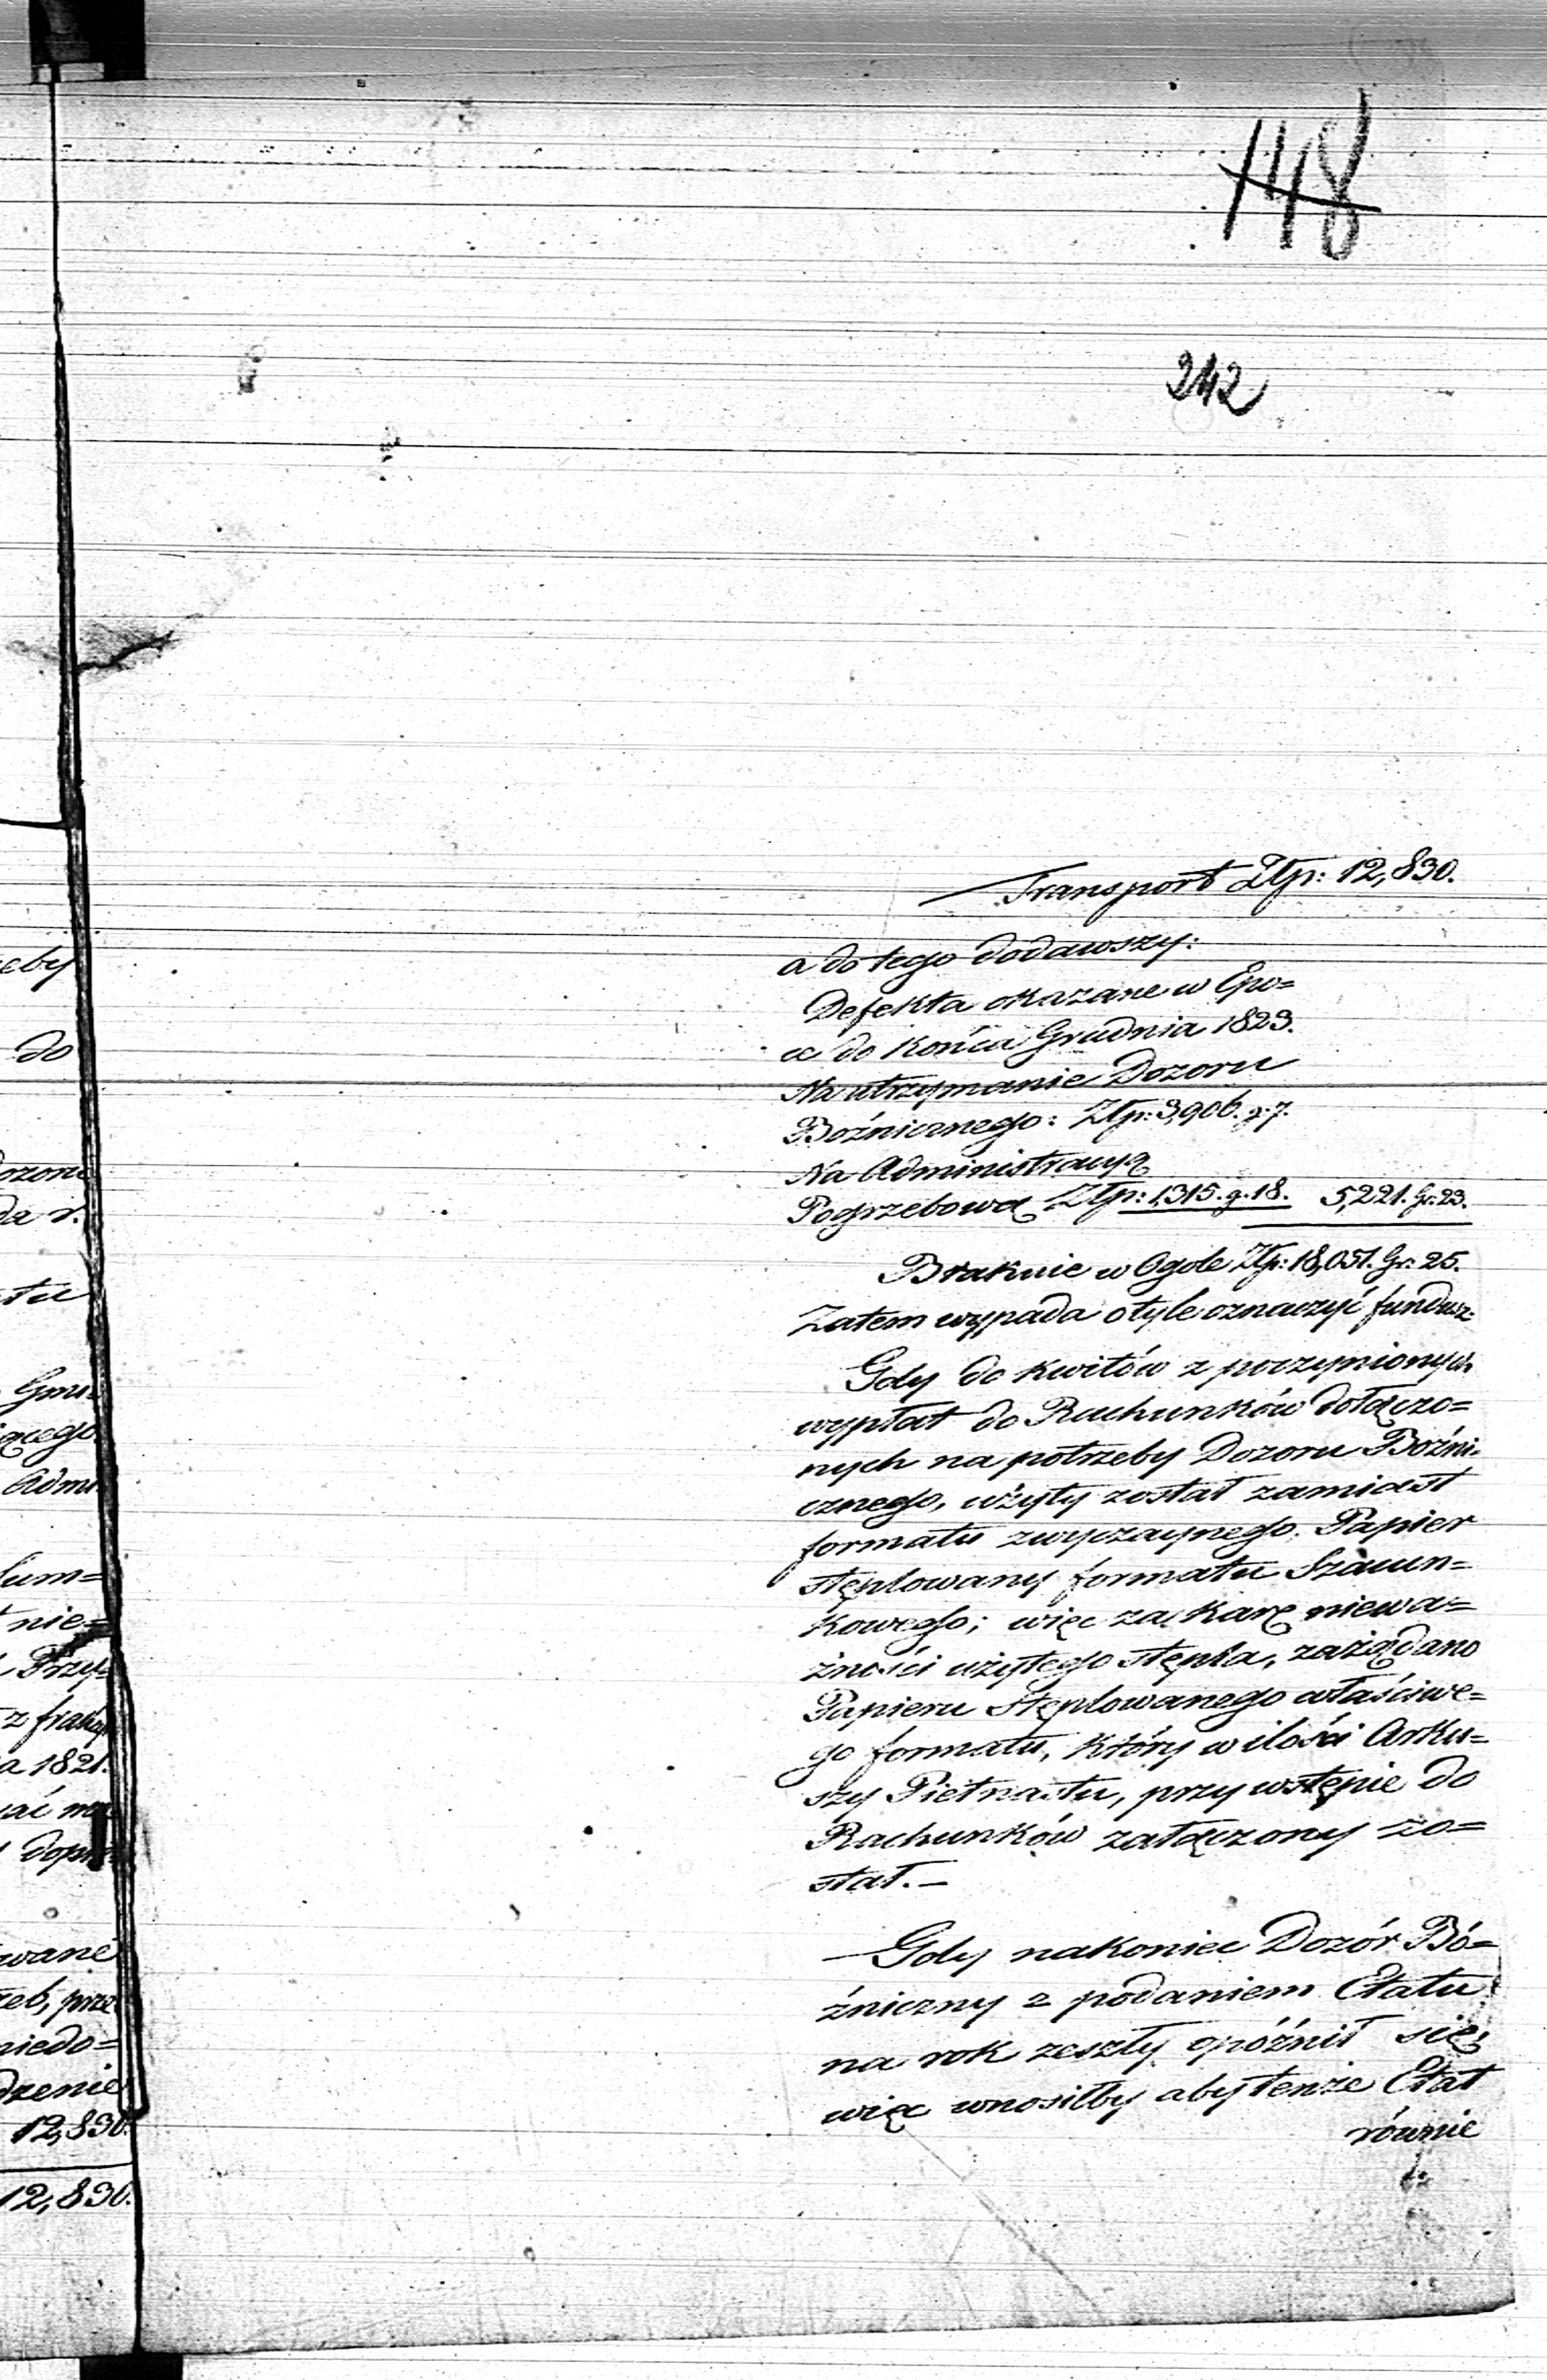 148
242
Transport Złp: 12,830.
a do tego dodawszy:
Defekta okazane w Epo=
ce do końca Grudnia 1823.
Na utrzymanie Dozoru
Bożnicznego: Złp: 3,906. g. 7.
Na Administracyą
Pogrzebową Złp: 1,315. g. 18. 5,221. Gr. 23.
Braknie w Ogole Złp: 18,051. Gr: 25.
Zatem wypada otyle oznaczyć fundusz
Gdy do kwitów z poczynionych
wypłat do Rachunków dołączo=
nych na potrzeby Dozoru Boźni=
cznego, użyty został zamiast
formatu zwyczaynego, Papier
stęplowany formatu Szacun=
kowego; więc za karę niewa=
żności użytego stępla, zażądano
Papieru stęplowanego właściwe=
go formatu, który w ilości Arku=
szy Pietnastu, przy wstępie do
Rachunków załączony zo=
stał.—
—Gdy nakoniec Dozór Bó=
źniczny z podaniem Etatu
na rok zeszły opóźnił się,
więc wnosiłby aby tenże Etat
równie
eby
do
ozoru
da r.
tu
Gmi
iącego
Adm
Sum=
nie=
Przy
z
a 1821.
wane
zeb, prze
niedo=
dzenie
12,830.
12,830.